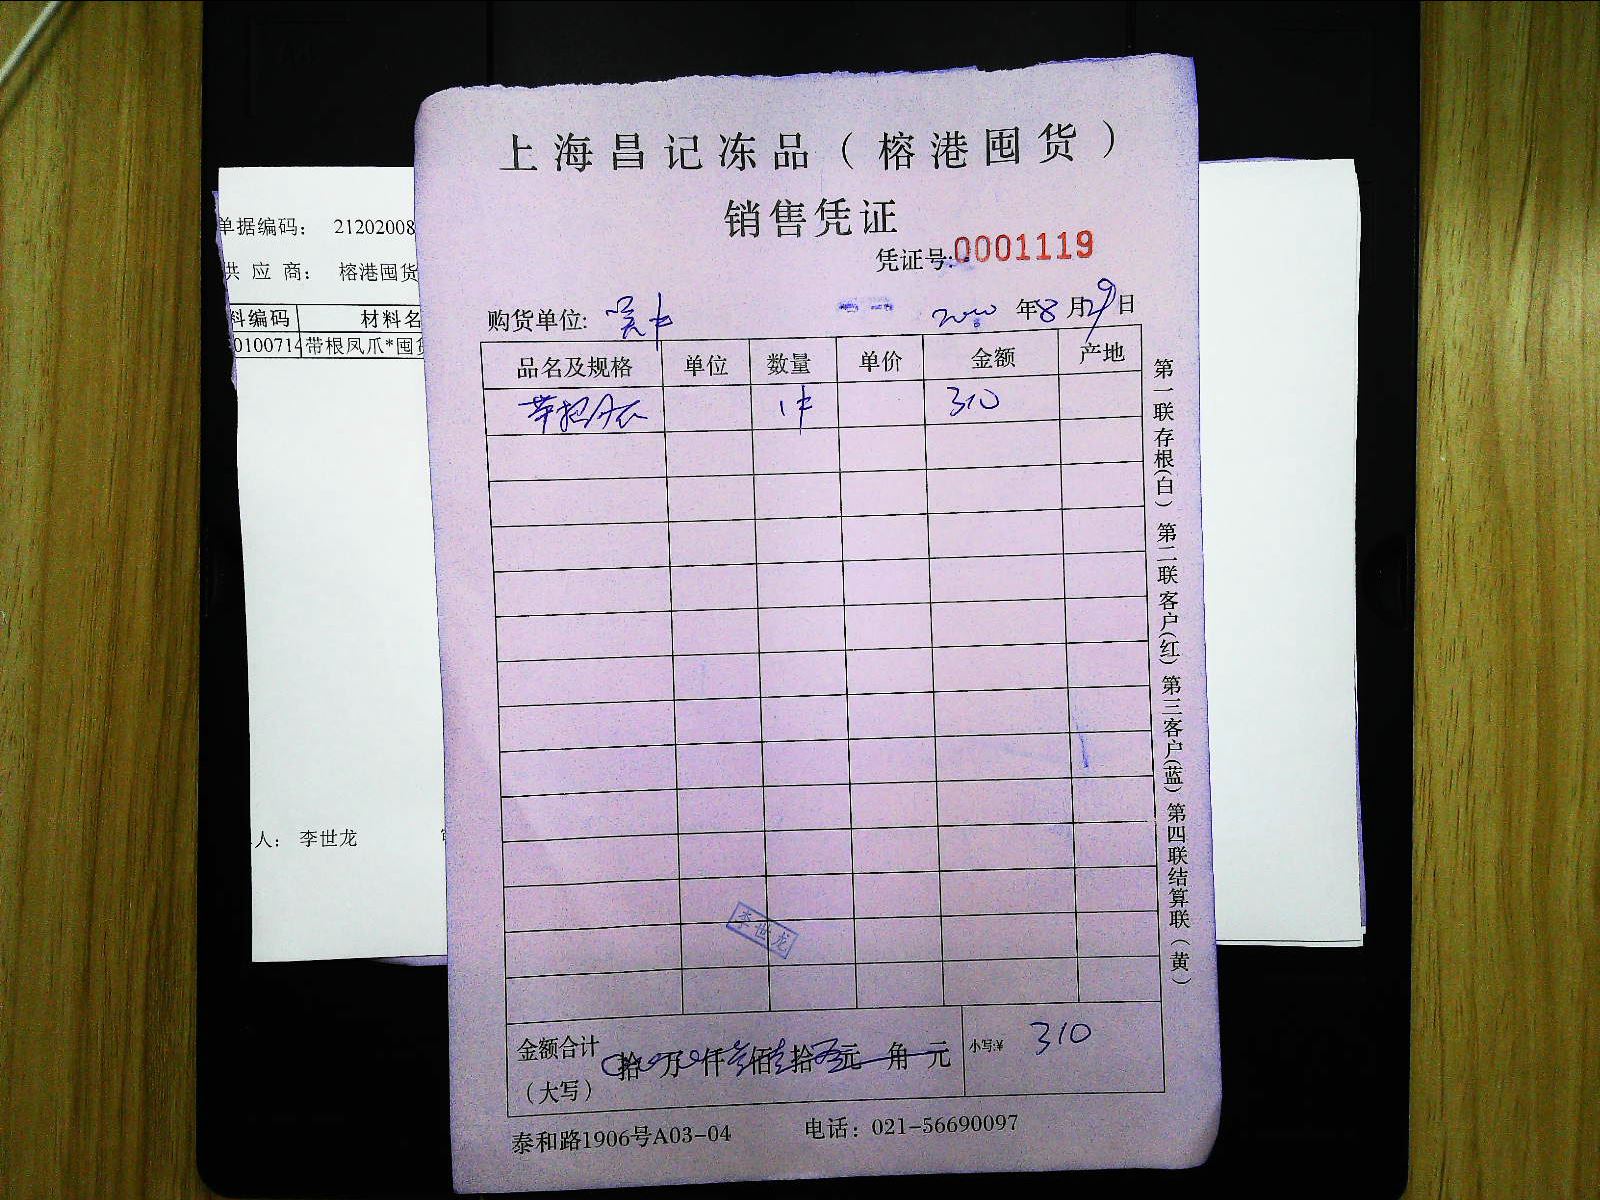 上海昌记冻品（榕港囤货）
销售凭证
凭证号:0001119
购货单位: 2020 年 8 月 29 日
品名及规格 单位 数量 单价 金额 产地
1件 310
金额合计（大写） 拾 万 仟 叁佰 壹拾 元 角 元 小写:¥ 310
泰和路1906号A03-04 电话：021-56690097
第一联存根(白) 第二联客户(红) 第三客户(蓝) 第四联结算联(黄)
李世龙
单据编码： 21202008
供应商： 榕港囤货
料编码 材料名
010071 带根凤爪*囤货
人： 李世龙